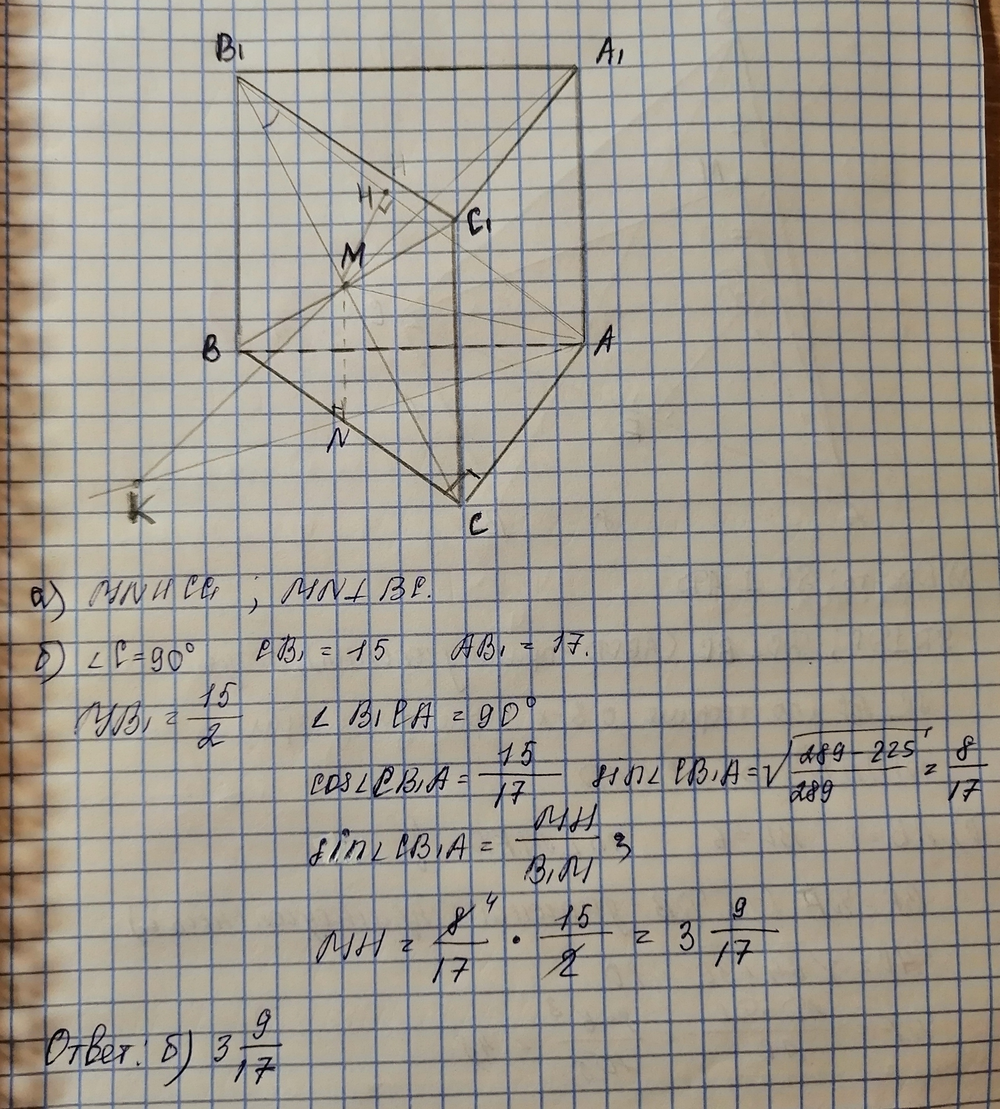 B₁ A₁
H
C₁
M
B A
N
K
C
а) MN ∥ CC₁ ; MN ⊥ BC.
б) ∠C = 90° CB₁ = 15 AB₁ = 17.
MB₁ = 15/2 ∠B₁CA = 90°
cos∠CB₁A = 15/17 sin∠CB₁A = √(289 - 225/289) = 8/17
sin∠CB₁A = MH/B₁M ;
MH = 8/17 4 · 15/2 = 3 9/17
Ответ: б) 3 9/17